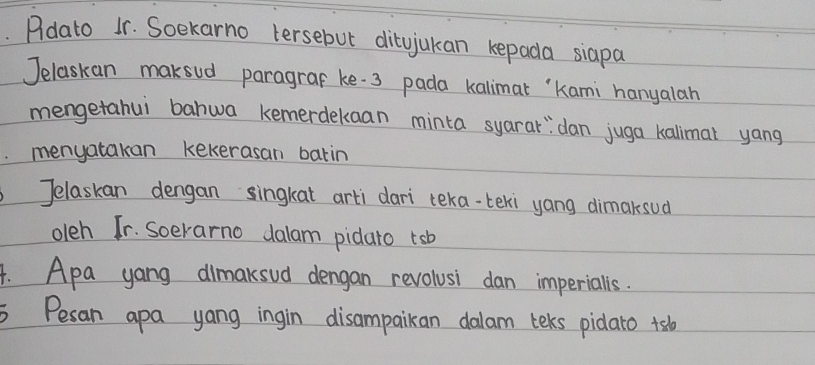 . Pidato Ir. Soekarno tersebut ditujukan kepada siapa
Jelaskan maksud paragraf ke-3 pada kalimat "Kami hanyalah
mengetahui bahwa kemerdekaan minta syarat". dan juga kalimat yang
. menyatakan kekerasan batin
3 Jelaskan dengan singkat arti dari teka-teki yang dimaksud
oleh Ir. Soekarno dalam pidato tsb
4. Apa yang dimaksud dengan revolusi dan imperialis.
5 Pesan apa yang ingin disampaikan dalam teks pidato tsb